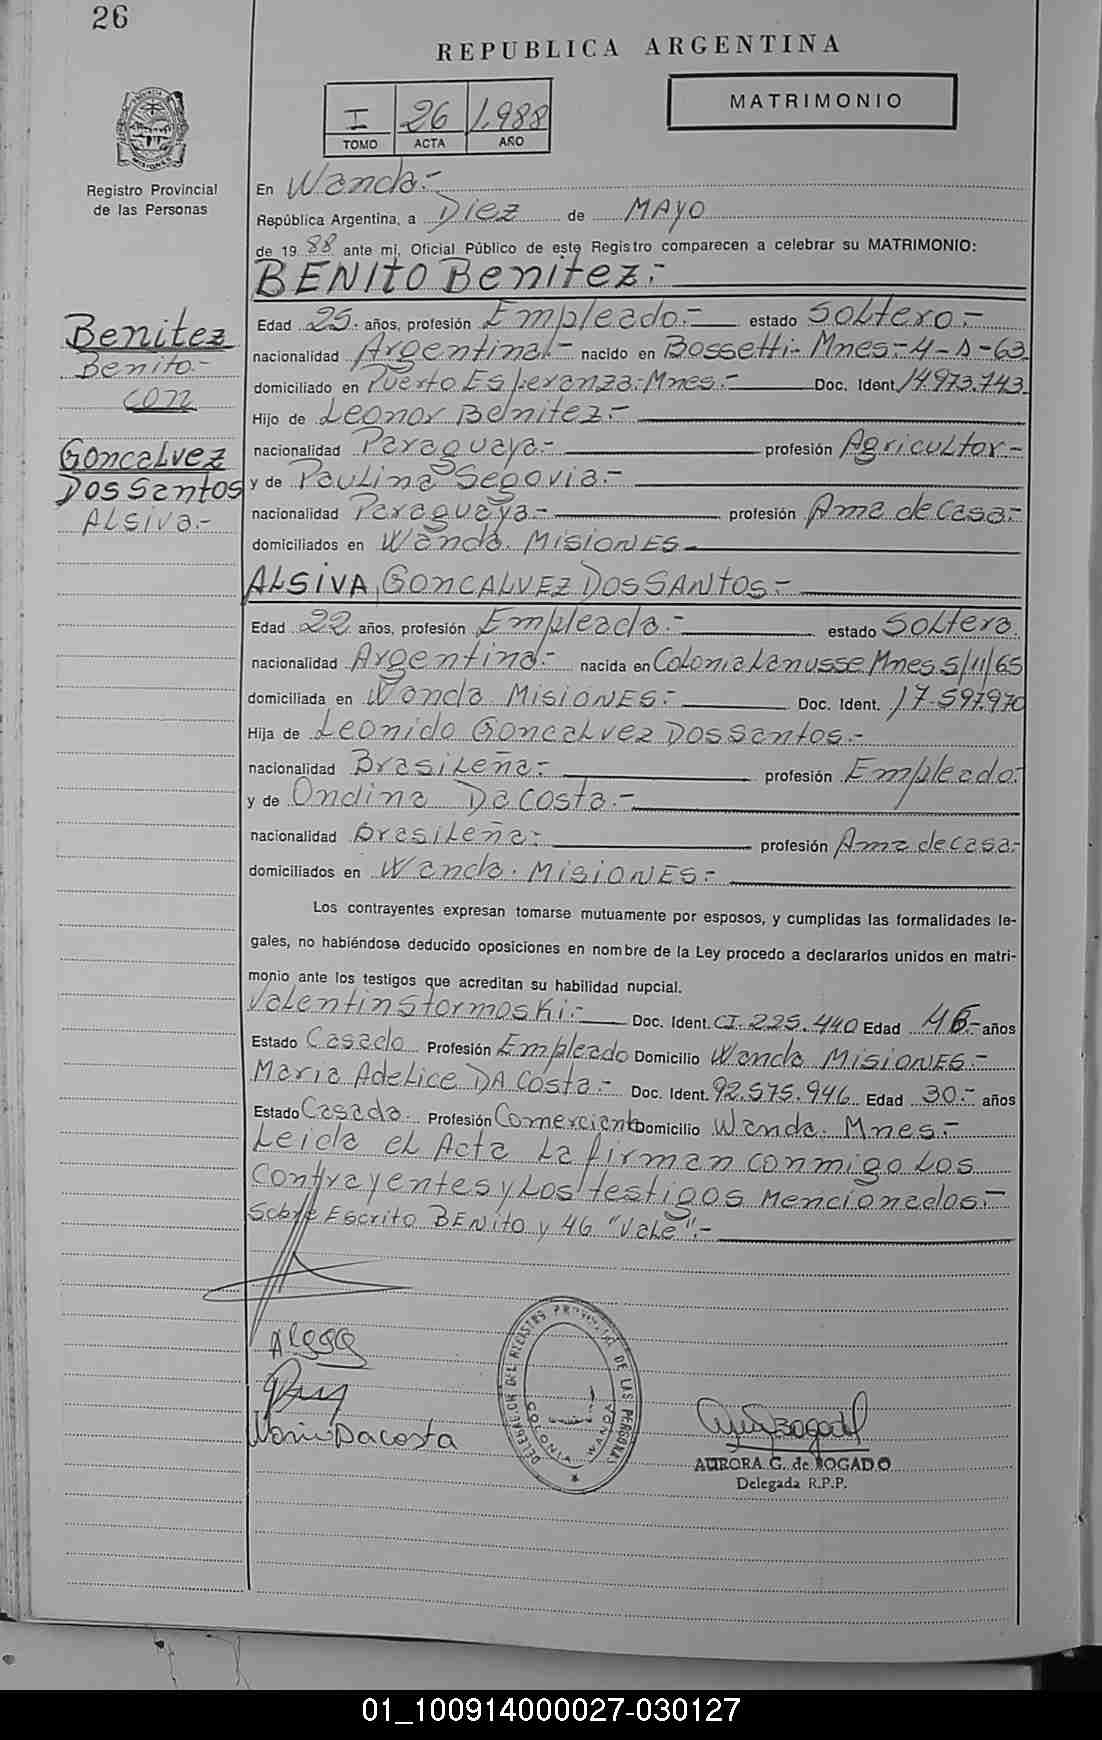 26
REPUBLICA ARGENTINA
MATRIMONIO
I 26 1.988
TOMO ACTA AÑO
Registro Provincial
de las Personas
En Wanda.-
República Argentina, a Diez de MAYO
de 19 88 ante mi, Oficial Público de este Registro comparecen a celebrar su MATRIMONIO:
BENITO Benitez.-
Benitez
Benito.-
con
Goncalvez
Dos Santos
ALSiva.-
Edad 25. años, profesión Empleado.- estado SOLtero.-
nacionalidad Argentina.- nacido en Bossetti- Mnes.-4-1-63
domiciliado en Puerto Esperanza.Mnes.- Doc. Ident. 14.973.743
Hijo de Leonor Benitez.-
nacionalidad Paraguaya.- profesión AgricuLtor-
y de Paulina Segovia.-
nacionalidad Paraguaya.- profesión Ama de casa.-
domiciliados en Wanda. MISIONES-
ALSIVA GONCALVEZ DOSSANtos.-
Edad 22 años, profesión Empleada.- estado SOLtera.
nacionalidad Argentina.- nacida en Colonia Lanusse Mnes 5/11/65
domiciliada en Wanda MISIONES.- Doc. Ident. 17.597.970
Hija de Leonido GoncaLvez Dos Santos.-
nacionalidad BrasiLeña.- profesión Empleado.-
y de Ondina Da Costa.-
nacionalidad BrasiLeña.- profesión Ama de casa.-
domiciliados en Wanda. MISIONES.-
Los contrayentes expresan tomarse mutuamente por esposos, y cumplidas las formalidades le-
gales, no habiéndose deducido oposiciones en nombre de la Ley procedo a declararlos unidos en matri-
monio ante los testigos que acreditan su habilidad nupcial.
ValentinStormoski.- Doc. Ident. CI. 225.440 Edad 46.- años
Estado Casado Profesión Empleado Domicilio Wanda MISIONES.-
Maria Adelice DA Costa.- Doc. Ident. 92.575.946 Edad 30.- años
Estado Casada. Profesión Comerciante Domicilio Wanda. Mnes.-
Leida eL Acta La firman conmigo Los
Contrayentes y Los testigos Mencionados.-
Sobre Escrito BENito y 46 "VaLe".-
Maria Dacosta
DELEGACION DEL REGISTRO PROVINCIAL DE LAS PERSONAS
COLONIA WANDA
AURORA G. de ROGADO
Delegada R.P.P.
01_100914000027-030127